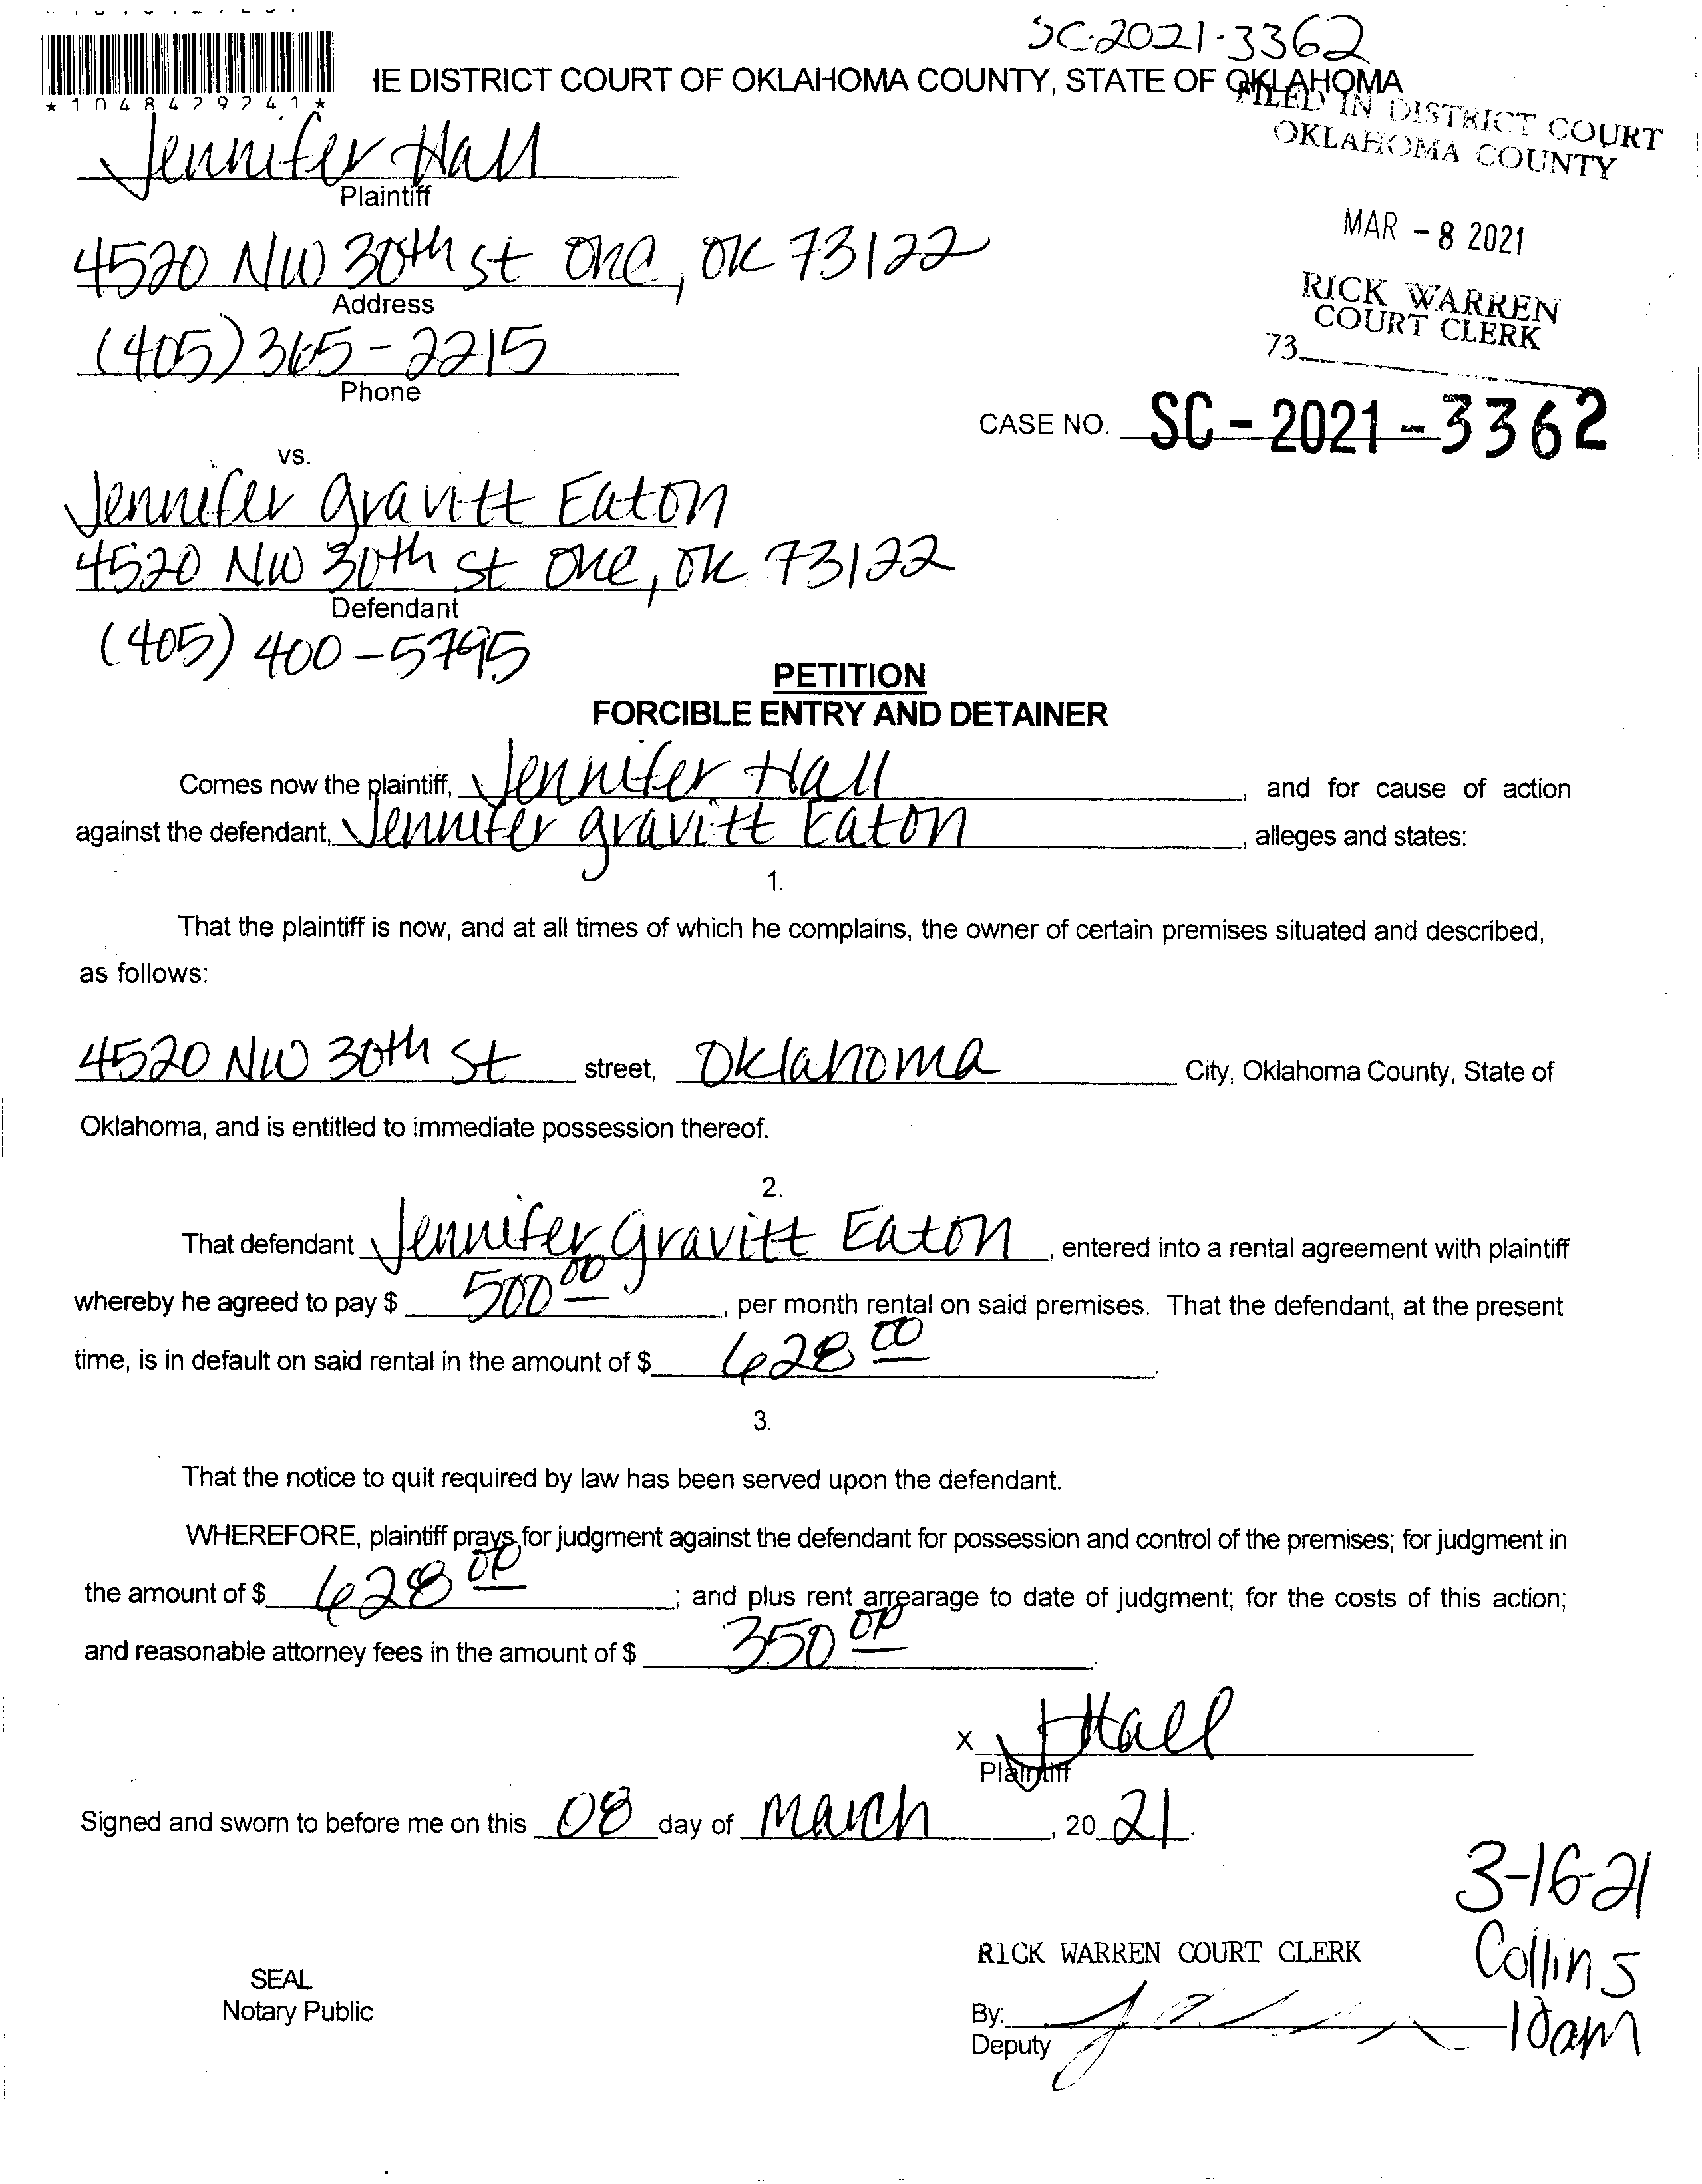 SC-2021-3362
IE DISTRICT COURT OF OKLAHOMA COUNTY, STATE OF OKLAHOMA
*1048429241*
FILED IN DISTRICT COURT
OKLAHOMA COUNTY
Jennifer Hall
Plaintiff
MAR - 8 2021
4520 NW 30th st OKC, OK 73122
Address
RICK WARREN
COURT CLERK
73
(405) 365-2215
Phone
CASE NO. SC - 2021 - 3362
vs.
Jennifer Gravitt Eaton
4520 NW 30th St OKC, OK 73122
Defendant
(405) 400-5795
PETITION
FORCIBLE ENTRY AND DETAINER
Comes now the plaintiff, Jennifer Hall, and for cause of action
against the defendant, Jennifer gravitt Eaton, alleges and states:
1.
That the plaintiff is now, and at all times of which he complains, the owner of certain premises situated and described,
as follows:
4520 NW 30th St street, Oklahoma City, Oklahoma County, State of
Oklahoma, and is entitled to immediate possession thereof.
2.
That defendant Jennifer Gravitt Eaton, entered into a rental agreement with plaintiff
whereby he agreed to pay $ 500 00, per month rental on said premises. That the defendant, at the present
time, is in default on said rental in the amount of $ 628 00.
3.
That the notice to quit required by law has been served upon the defendant.
WHEREFORE, plaintiff prays for judgment against the defendant for possession and control of the premises; for judgment in
the amount of $ 628 00; and plus rent arrearage to date of judgment; for the costs of this action;
and reasonable attorney fees in the amount of $ 350 00.
x JHall
Plaintiff
Signed and sworn to before me on this 08 day of March, 20 21.
3-16-21
Collins
10am
RICK WARREN COURT CLERK
SEAL
Notary Public
By:
Deputy